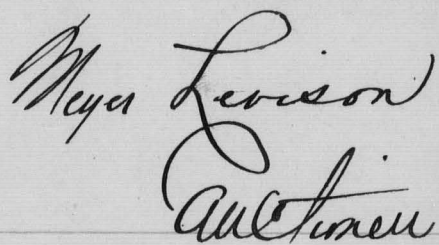 Meyer Levison
Auctioneer